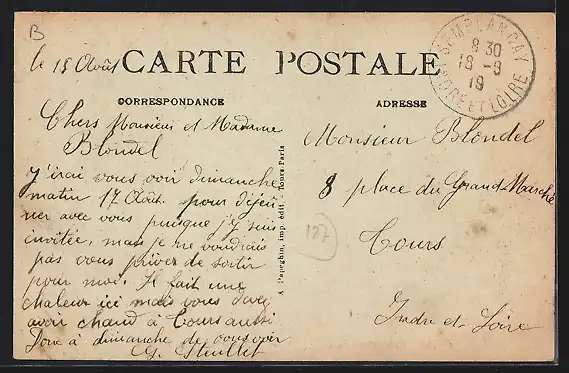 B
le 15 Août
CARTE POSTALE
SEMBLANÇAY
8 30
16 -8
19
INDRE ET LOIRE
CORRESPONDANCE
ADRESSE
Chers Monsieur et Madame
Blondel
J'irai vous voir dimanche
matin 17 Août. pour déjeu
ner avec vous puisque j'y suis
invitée, mais je ne voudrais
pas vous priver de sortir
pour moi. Il fait une
chaleur ici mais vous devez
avoir chaud à Tours aussi
Donc à dimanche de vous voir
G.
A. Papeghin, imp. édit. - Tours-Paris
Monsieur Blondel
8 place du Grand Marché
127
Tours
Indre et Loire